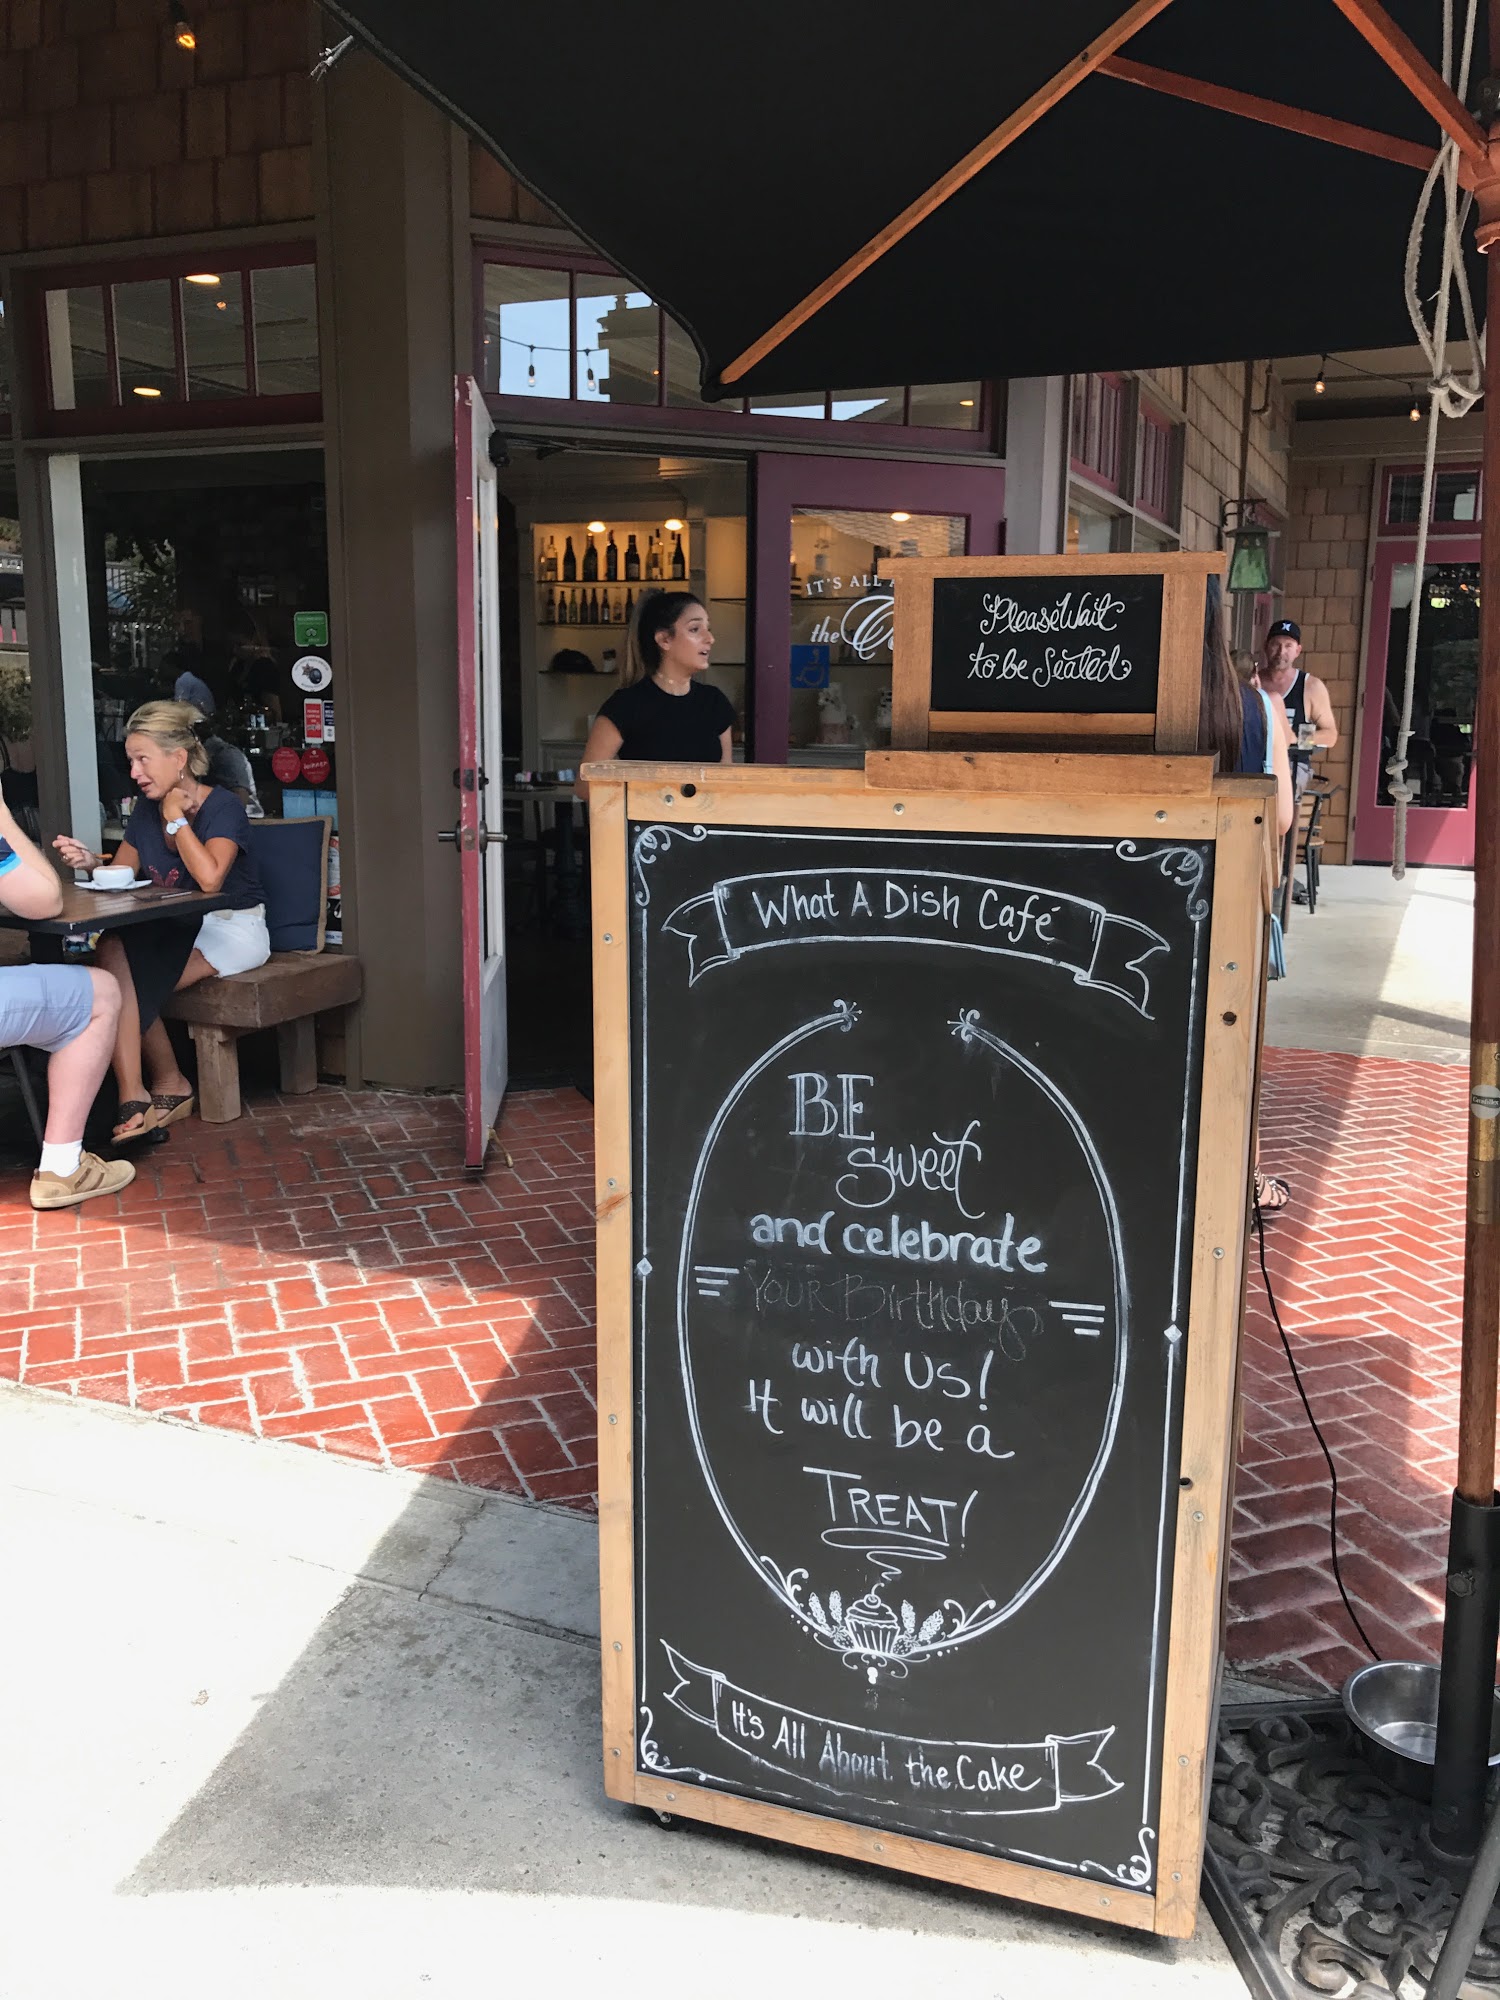 IT'S ALL
the
Please Wait
to be Seated
What A Dish Café
BE
sweet
and celebrate
Your Birthday
with us!
It will be a
TREAT!
It's All About the Cake